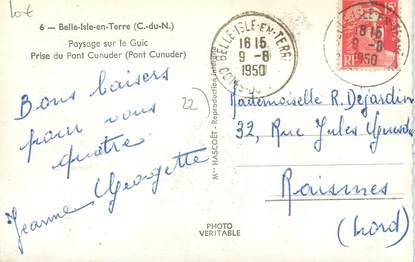 lot
6 — Belle-Isle-en-Terre (C.-du-N.)
Paysage sur le Guic
Prise du Pont Cunuder (Pont Cunuder)
Bons baisers
pour vous
quatre
Jeanne Georgette
22
Mme HASCOËT - Reproduction interdite
PHOTO
VERITABLE
BELLE-ISLE-EN-TERRE
18 15
9 -8
1950
18 15
9 -8
1950
15F
RF
Mademoiselle R. Dejardin
32, Rue Jules Guesde
Raismes
(Nord)